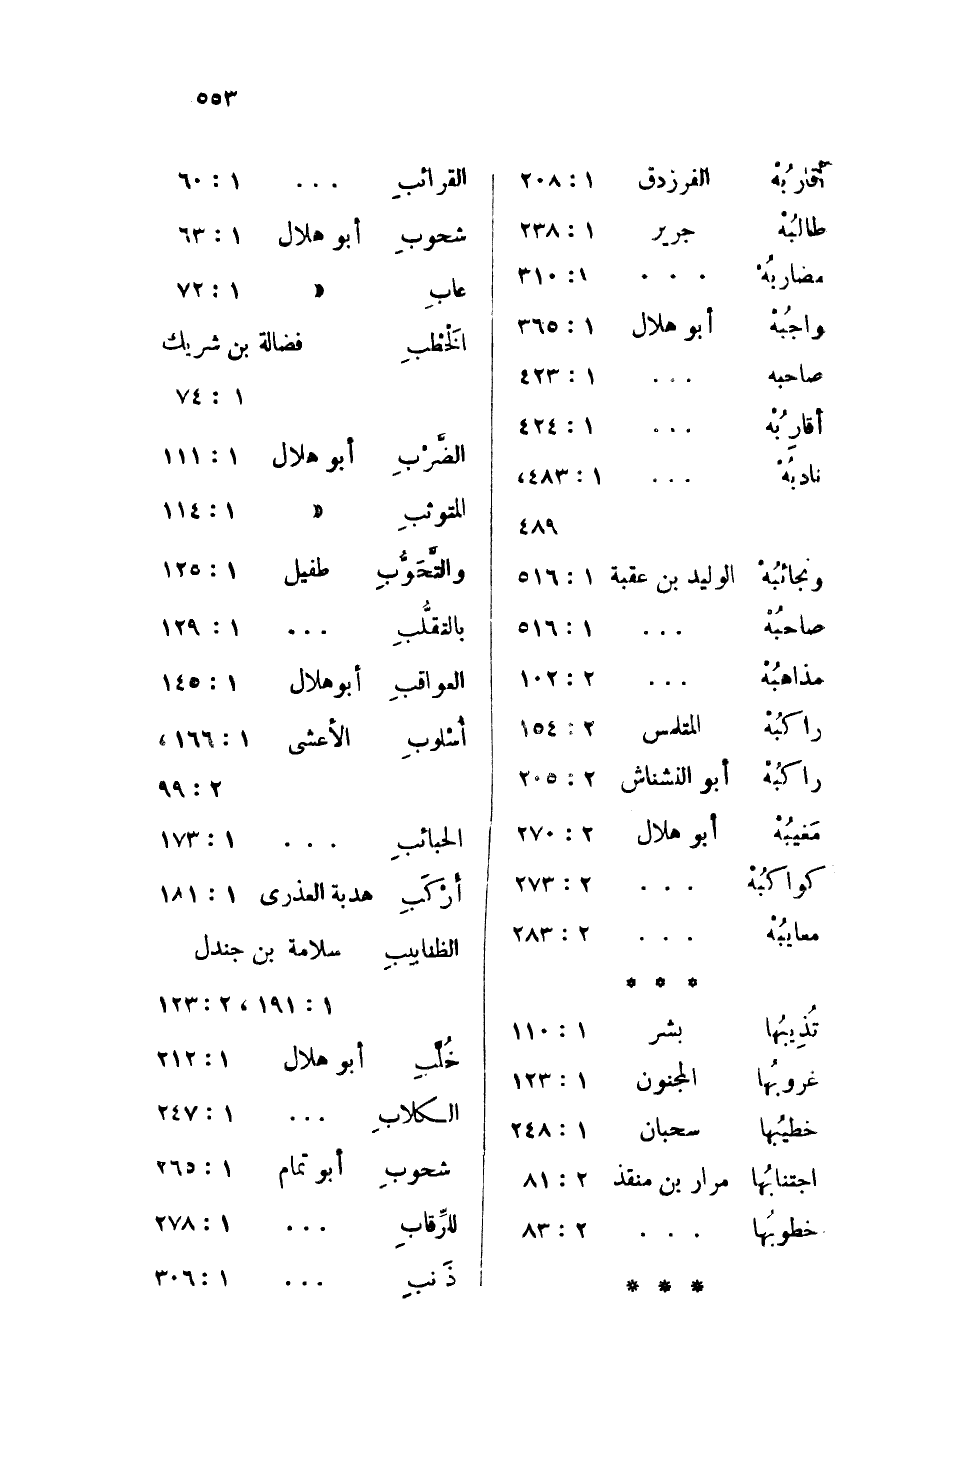 ٥٥٣
أقارِبُهْ الفرزدق ١ : ٢٠٨
طالبُهْ جرير ١ : ٢٣٨
مضاربُهْ . . . ١: ٣١٠
واجبُهْ أبو هلال ١ : ٣٦٥
صاحبه ... ١ : ٤٢٣
أقاربُهْ ... ١ : ٤٢٤
نادبُهْ ... ١ : ٤٨٣،
٤٨٩
ونجائبُهْ الوليد بن عقبة ١ : ٥١٦
صاحبُهْ ... ١ : ٥١٦
مذاهبُهْ ... ٢ : ١٠٢
راكبُهْ المتلمس ٢ : ١٥٤
راكبُهْ أبو النشناش ٢ : ٢٠٥
مَغيبُهْ أبو هلال ٢ : ٢٧٠
كواكبُهْ . . . ٢ : ٢٧٣
معايبُهْ . . . ٢ : ٢٨٣
* * *
تُذِيبُها بشر ١ : ١١٠
غروبُها المجنون ١ : ١٢٣
خطيبُها سحبان ١ : ٢٤٨
اجتنابُها مرار بن منقذ ٢ : ٨١
خطوبُها . . . ٢ : ٨٣
* * *
القرائبِ ... ١ : ٦٠
شحوبِ أبو هلال ١ : ٦٣
عابِ » ١ : ٧٢
الخَطْبِ فضالة بن شريك
١ : ٧٤
الضَّرْبِ أبو هلال ١ : ١١١
المتوثبِ » ١ : ١١٤
والتَّحَوُّبِ طفيل ١ : ١٢٥
بالتقلُّبِ ... ١ : ١٢٩
العواقبِ أبو هلال ١ : ١٤٥
أُسْلوبِ الأعشى ١ : ١٦٦،
٢ : ٩٩
الحبائبِ . . . ١ : ١٧٣
أرْكَبِ هدبة العذرى ١ : ١٨١
الظنابيبِ سلامة بن جندل
١ : ١٩١ ، ٢ : ١٢٣
خُلَّبِ أبو هلال ١ : ٢١٢
الكلابِ ... ١ : ٢٤٧
شحوبِ أبو تمام ١ : ٢٦٥
للرِّقابِ ... ١ : ٢٧٨
ذَنبِ ... ١ : ٣٠٦